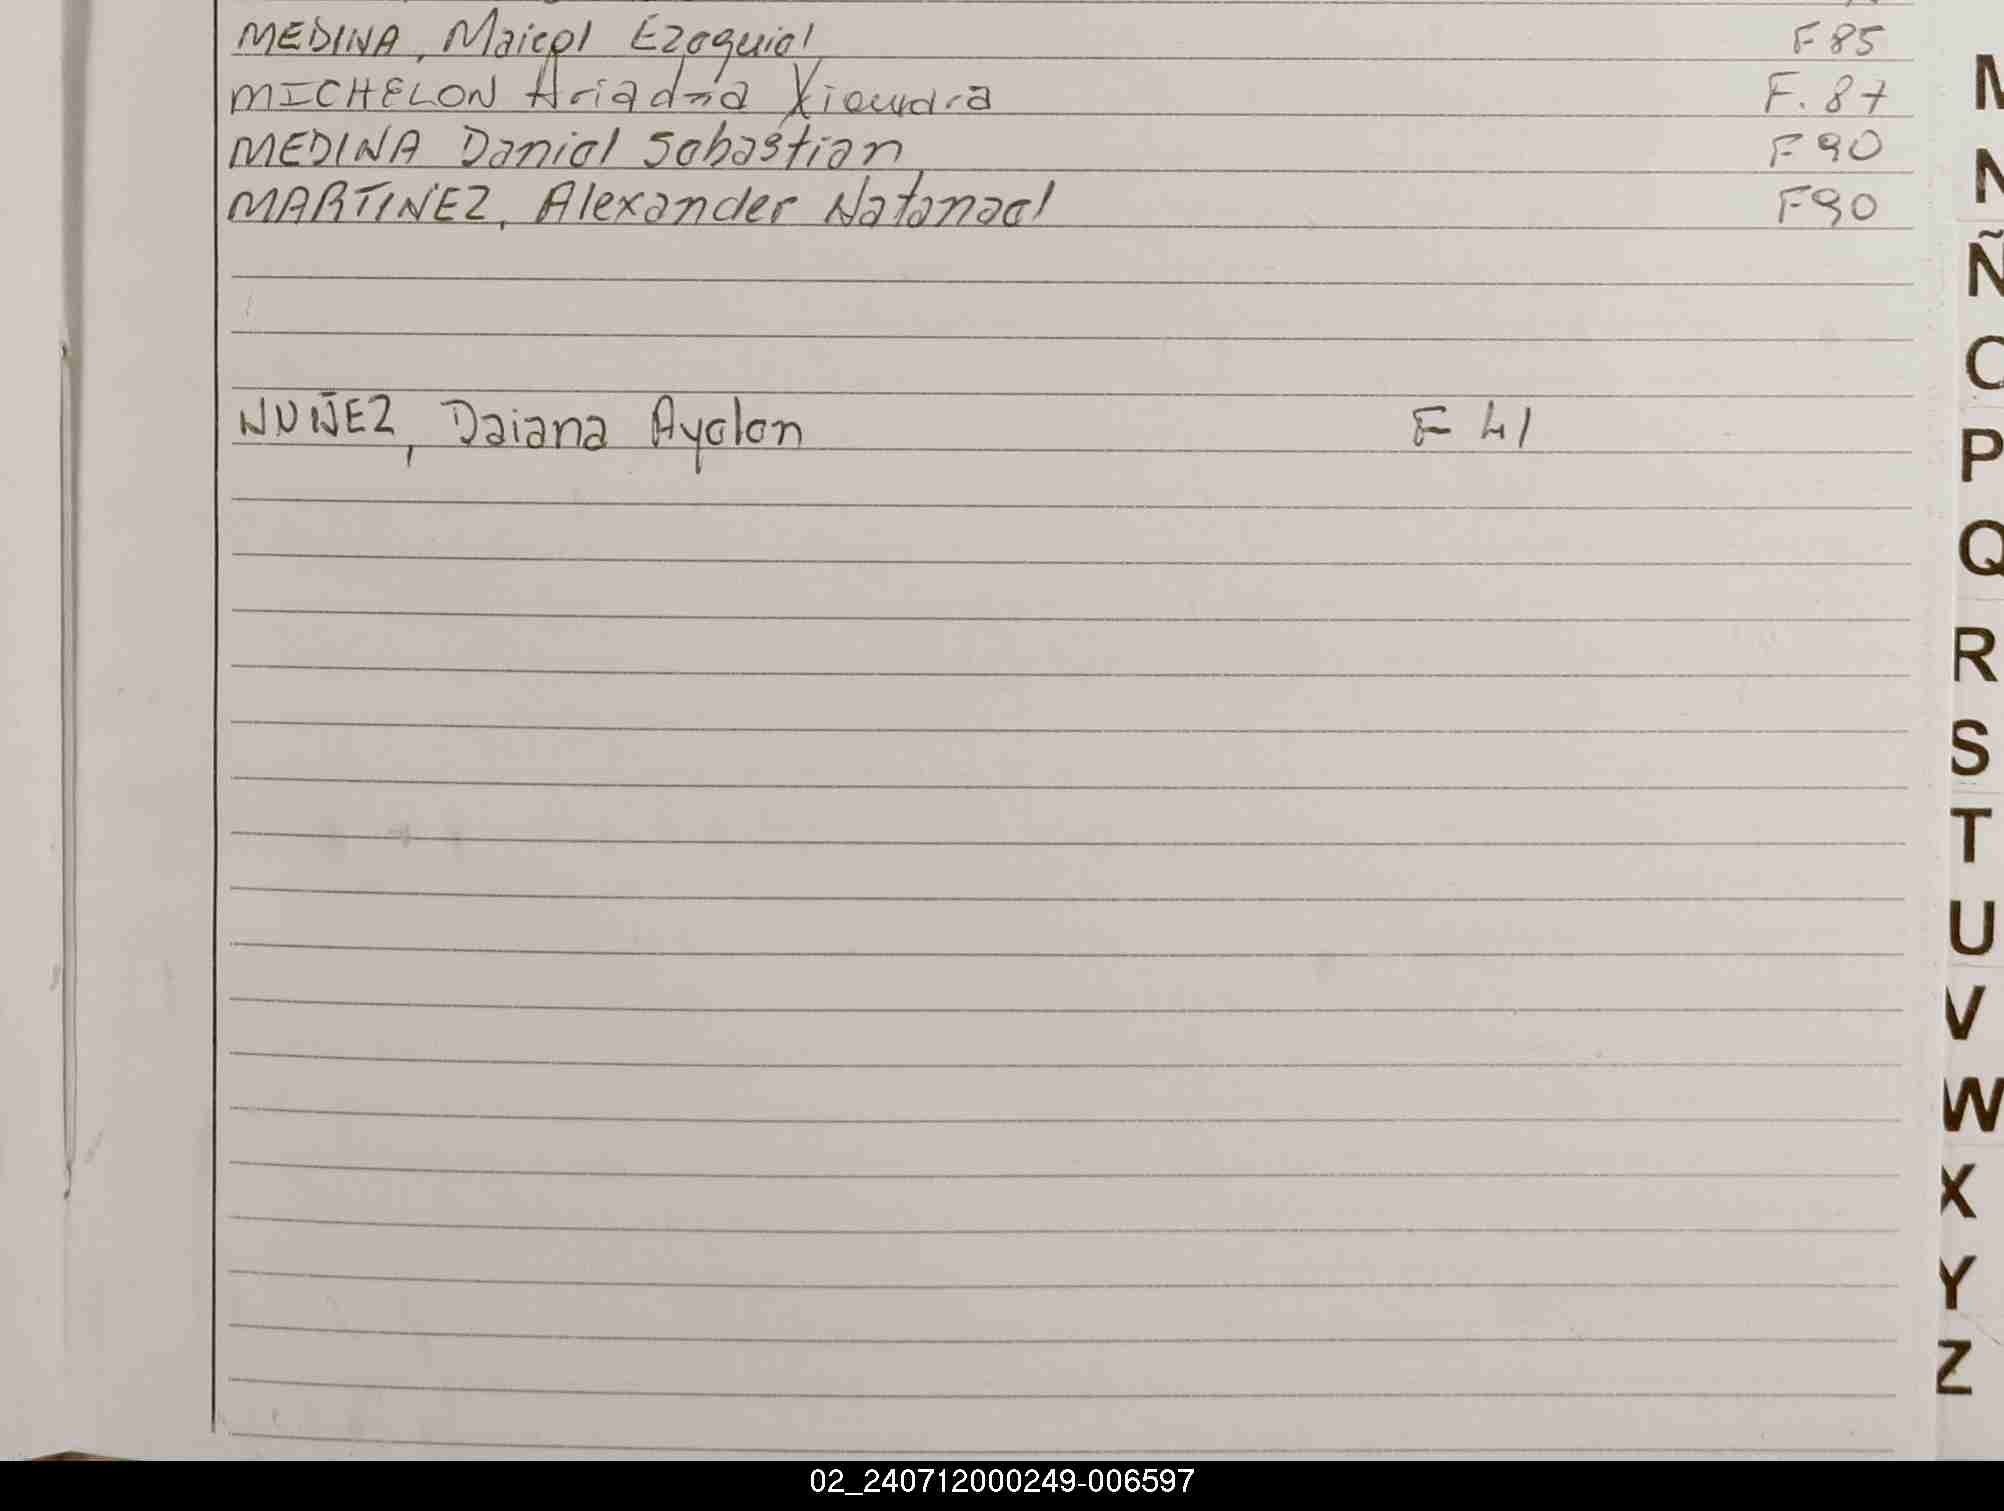 MEDINA, Maicol Ezequiel F 85
MICHELON Ariadna Xiomara F. 87
MEDINA Daniel Sebastian F 90
MARTINEZ, Alexander Natanael F90
NUÑEZ, Daiana Ayelen F 41
M
N
Ñ
O
P
Q
R
S
T
U
V
W
X
Y
Z
02_240712000249-006597